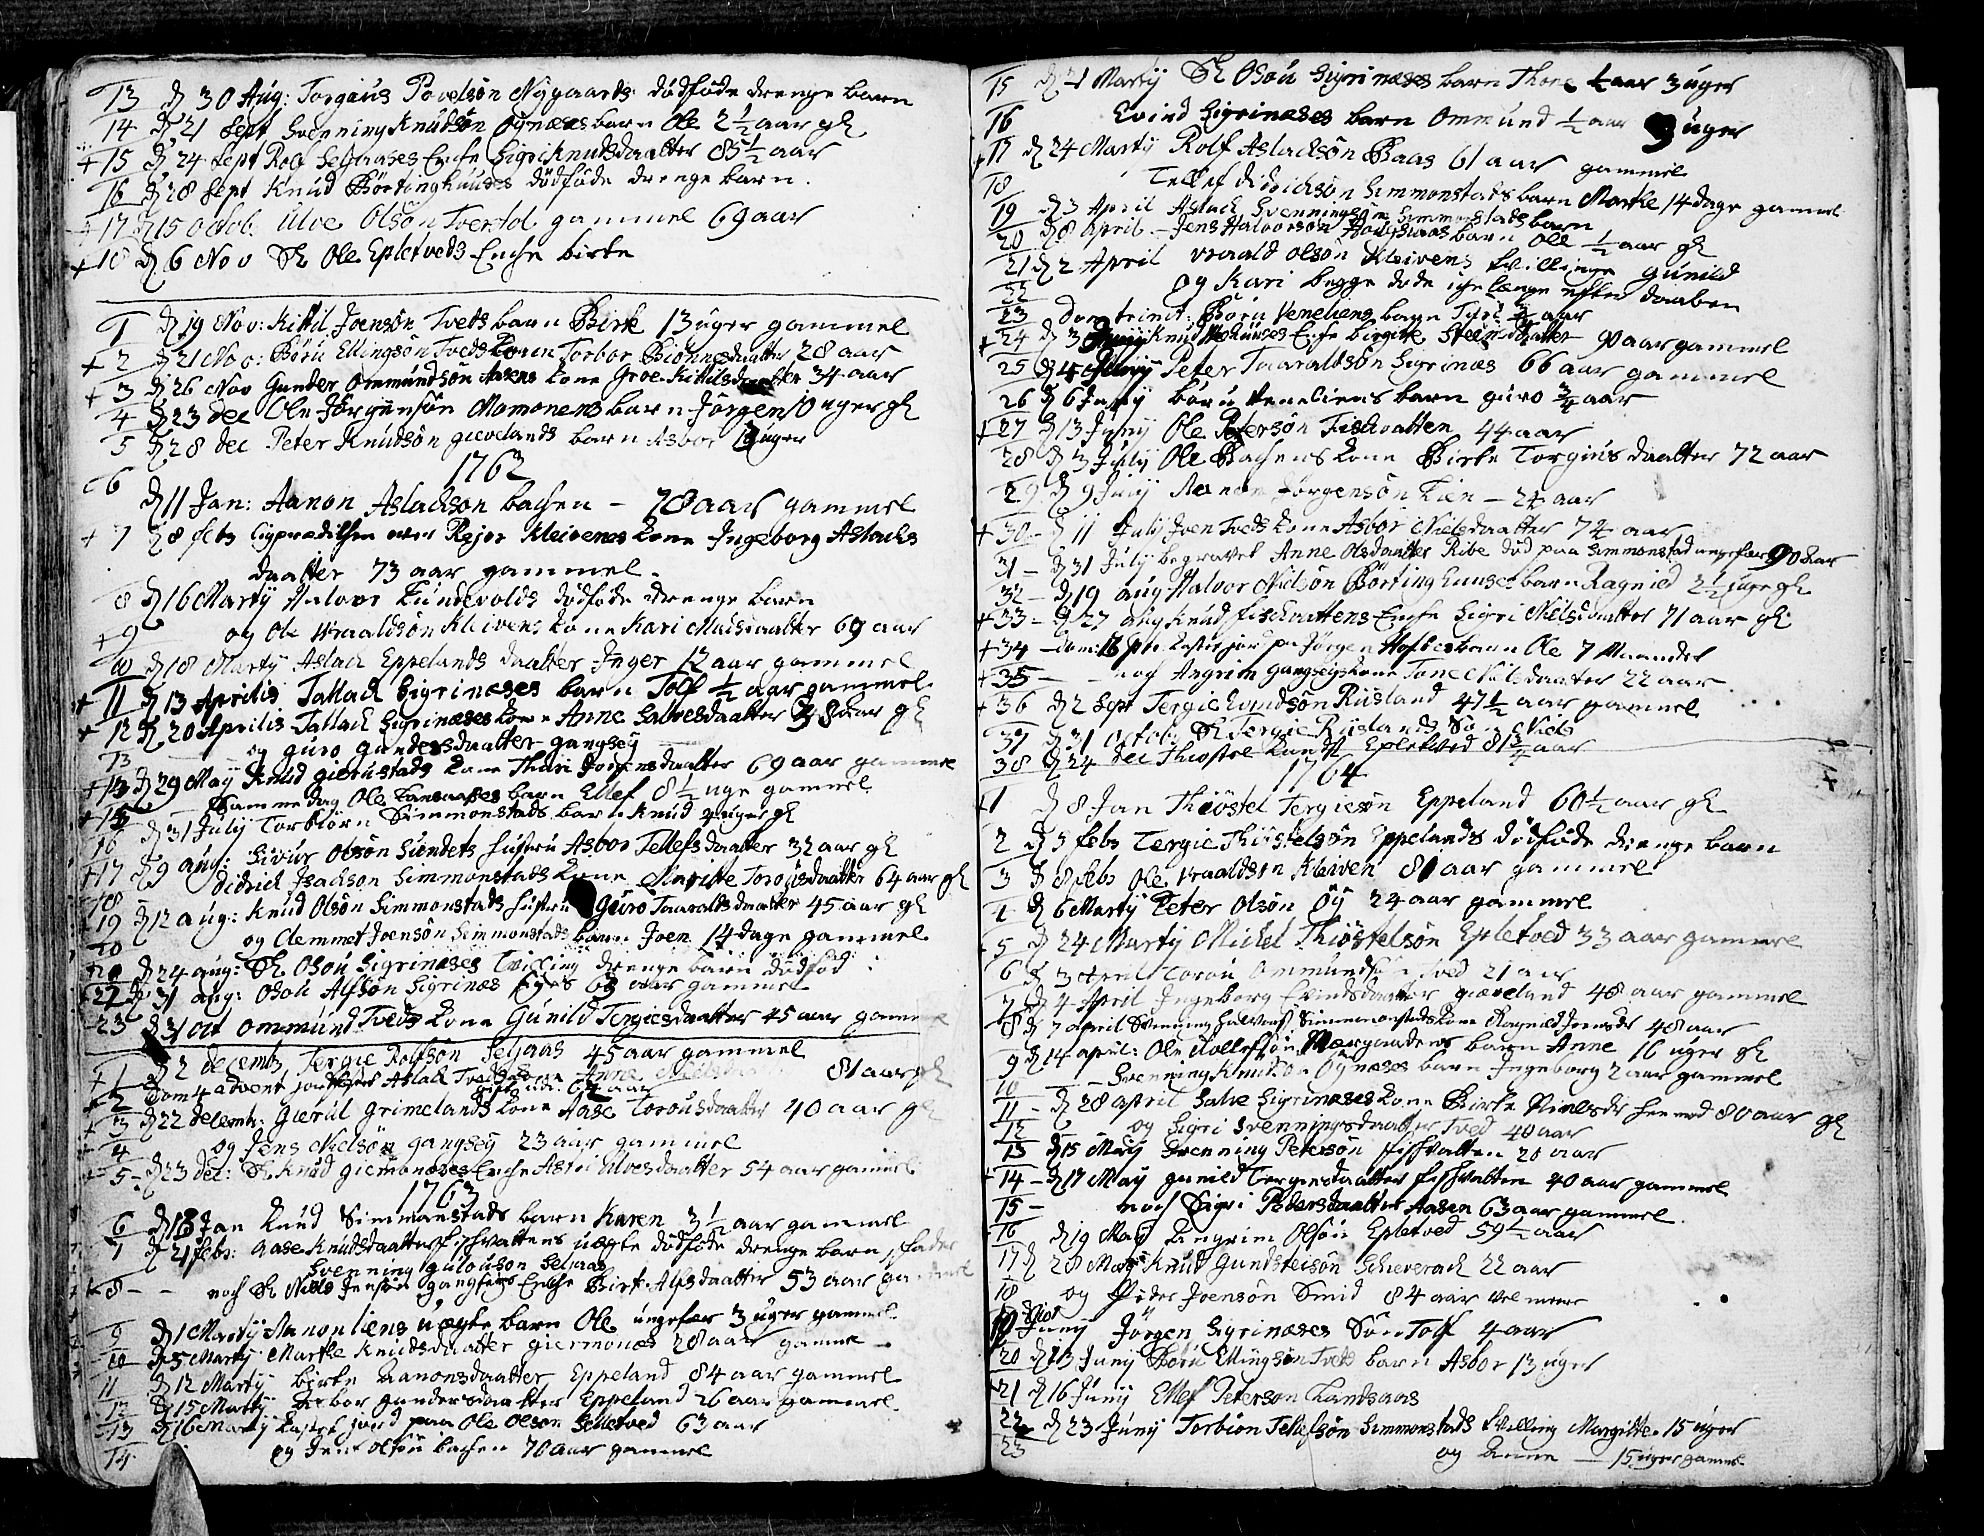 13 d 30 Aug: Torgius Povelsøn Nÿgaards dødføde drenge barn
14 d 21 Sept Svenning Knudsøn Øynæses barn Ole 2 1/2 aar gl
+ 15 d 24 Sept Rolf Seljaases Enche Sigri Knutsdaatter 85 1/2 aar
16 d 28 Sept Knud Børtinghuuses dødføde drenge barn.
+ 17 d 15 octob. Ulve Olsøn Tvertøl gammel 69 aar
+ 18 d 6 Nov Sl Ole Epletveds Enche birte
1 d 19 Nov: Kittil Joensøn Tveds barn Birte 13 uger gammel
+ 2 d 21 Nov: Børu Ellingsøn Tveds Konen Torbor daatter 28 aar
+ 3 d 26 Nov Gunder Ommundsøn Aasens Kone Groe Kittilsdaatter 34 aar
4 d 23 dec Ole Jørgensøn Momonens barn Jørgen 10 uger gl
5 d 28 dec Peter Knudsøn gievelands barn Asbor uger
1762
6 d 11 Jan: Aanon Aslachsøn bachen — 78 aar gammel
+ 7 d 8 febr ligprædichen over Rejer Kleivenes Kone Ingeborg Aslachs
daatter 73 aar gammel.
8 d 16 Martÿ Halvor dødføde drenge barn
+ 9 og Ole Wraaldsøn Kleivens Kone Kari daatter 69 aar
10 d 18 Martÿ Aslach Eppelands daatter Inger 12 aar gammel
+ 11 d 13 Aprilis Tallach Sigrinæses barn Tolf 1/2 aar gammel.
+ 12 d 20 Aprilis Tallach Sigrinæses Kone Anne Salvesdaatter aar gl
13 og Guro Gundersdaatter gangsey
+ 14 d 29 Maÿ Knud gierustads Kone Thari Jorgensdaatter 69 aar gammel
+ 15 Samme dag Ole barn Ellef 8 1/2 uge gammel.
16 d 31 Julÿ Torbiørn Simmonstads barn Knud uger gl
+ 17 d 9 aug: Sivur Olsøn Sundets hustru Asbor Tellefsdaatter 32 aar gl
18 Didrich Isachsøn Simmonstads Kone Maritte daatter 64 aar gl
+ 19 d 12 aug: Knud Olsøn Simmonstads hustru Guro Taaraldsdaatter 45 aar gl
20 og Clemmet Joensøn Simmonstads barn Joen 14 dage gammel
d 24 aug: Sl Osou Sigrinæses Tvilling drenge barn dødfød
+ 22 d 31 aug: Osou Alfsøn Sigrinæs aar gammel
23 d 31 Oct Ommund Tveds Kone Gunild Tergiesdaatter 45 aar gammel
+ 1 d 2 decembr Tergie Rolfsøn Seljaas 45 aar gammel
+ 2 Dom 4 advent Aslach Tveds Anne 81 aar gl
+ 3 d 22 decembr: Gierul Grimelands Kone Aase Torousdaatter 40 aar gl
+ 4 og Jens Nielsøn gangsey 23 aar gammel
+ 5 d 23 dec: Sl Knud giermonæses Enche Astri Ulvesdaatter 54 aar gammel
1763
6 d 13 Jan Knud Simmonstads barn Karen 3 1/2 aar gammel
7 d 21 febr: Aase Knudsdaatter fischvattens uægte dødføde drenge barn, fader
Svenning Seljaas
+ 8 — noch Sl Niels Jensøn Enche Birte Alfsdaatter 53 aar gammel
9 d 1 Martÿ Aanon liens uægte barn Ole ungefær 3 uger gammel
10 d 5 Martÿ Marthe Knudsdaatter giermonæs 28 aar gamme
11 d 12 Martÿ birte Aanonsdaatter Eppeland 84 aar gammel
12 d 15 Martÿ Torbor Gundersdaatter Eppeland 26 aar gammel.
13 d 16 Martÿ kastet jord paa Ole Olsøn Epletved 63 aar
14 og Jens Olsøn bachen 70 aar gammel
15 d 21 Martÿ Sl Osou Sigrinæses barn Thore 1/2 aar 3 uger
16 Evind Sigrinæses barn Ommund 1/2 aar 3 uger
+ 17 d 24 Martÿ Rolf Aslachsøn Baas 61 aar gammel
18 Tellef Didrichsøn Simmonstads barn Marthe 14 dage gammel
19 d 3 April Aslach Svenningsøn Simmonstads barn
20 d 8 April — Jens Halvorsøn barn Ole 1/2 aar gl
21 d 2 April Vraald Olsøn Kleivens tvillinge gunild
22 og Kari begge døde iche længe efter daaben
23 dom trinit: Børu Veneliens barn aar
+ 24 d 3 Junÿ Knud Enche Birgitte daatter 90 aar gammel
25 d 4 Junÿ Peter Taaraldsøn Sigrinæs 66 aar gammel
26 d 6 Junÿ børu Veneliens barn guro 3/4 aar
+ 27 d 13 Junÿ Ole Petersøn Fischvatten 44 aar
28 d 3 Julÿ Ole Bachens Kone Birte Torgiusdaatter 72 aar
29 d 9 Julÿ Aanon Jørgensøn Lien — 24 aar
+ 30 — d 11 Julÿ Joen Tveds Kone Asbor Nielsdaatter 74 aar
31 — d 31 Julÿ begravet Anne Olsdaatter Ribe død paa Simmonstad ungefær 90 aar
32 — d 19 aug Halvor Nielsøn Børtinghuuses barn Ragnild 2 1/2 uge gl
+ 33 — d 27 aug Knud fischvattens Enche Sigri Nielsdaatter 71 aar gl
+ 34 — Dom: 16 kastet jord paa Jørgen barn Ole 7 Maander
+ 35 — noch Angrim gangseys Kone Tone Nielsdaatter 22 aar
+ 36 d 2 Sept Tergie Evindsøn Risland 47 1/2 aar gammel
37 d 31 Octob. Sl Tergie Riislands Søn Niels
38 d 24 dec Thiøstel Epletved 81 3/4 aar
1764
+ 1 d 8 Jan Thiøstel Tergiesøn Eppeland 60 1/2 aar gl
2 d 5 febr Tergie Thiøstelsøn Eppelands dødføde drenge barn
3 d 8 febr Ole Vraaldsøn Kleiven 80 aar gammel
4 d 6 Martÿ Peter Olsøn Øÿ 24 aar gammel
+ 5 d 24 Martÿ Michel Thiøstelsøn Epletved 33 aar gammel
6 d 3 April Torou Ommundsøn Tved 21 aar
7 d 4 April Ingeborg Evindsdaatter giæveland 48 aar gammel
8 d 7 april Svenning Simmonstads Kone Ragnild Joensdr 48 aar
9 d 14 april: Ole barn Anne 16 uger gl
10 — Svenning Knudsøn Øynæses barn Ingeborg 2 aar gammel
11 — d 28 april Salve Sigrinæses Kone Birte henved 80 aar gl
12 og Sigri Svenningsdaatter Tved 40 aar
13 d 15 Maÿ Svenning Petersøn fischvatten 20 aar
+ 14 — d 17 Maÿ gunild Tergiesdaatter fischvatten 40 aar gammel
15 — noch Sigri Pedersdaatter Aasen 63 aar gammel.
16 d 19 Maÿ Angrim Olsøn Epletved 59 1/2 aar
17 d 28 Maÿ Knud Gundersøn 22 aar
18 og Peder Joensøn Smid 84 aar vel mere
19 Junÿ Jörgen Sigrinæses Søn Tolf 4 aar
20 d 13 Junÿ Børu Ellingsøn Tveds barn Asbor 13 uger
21 d 16 Junÿ Ellef Petersøn
22 d 23 Junÿ Torbiøn Tellefsøn Simmonstads tvilling Margitte 15 uger
23 og Anne — 15 uger gammel